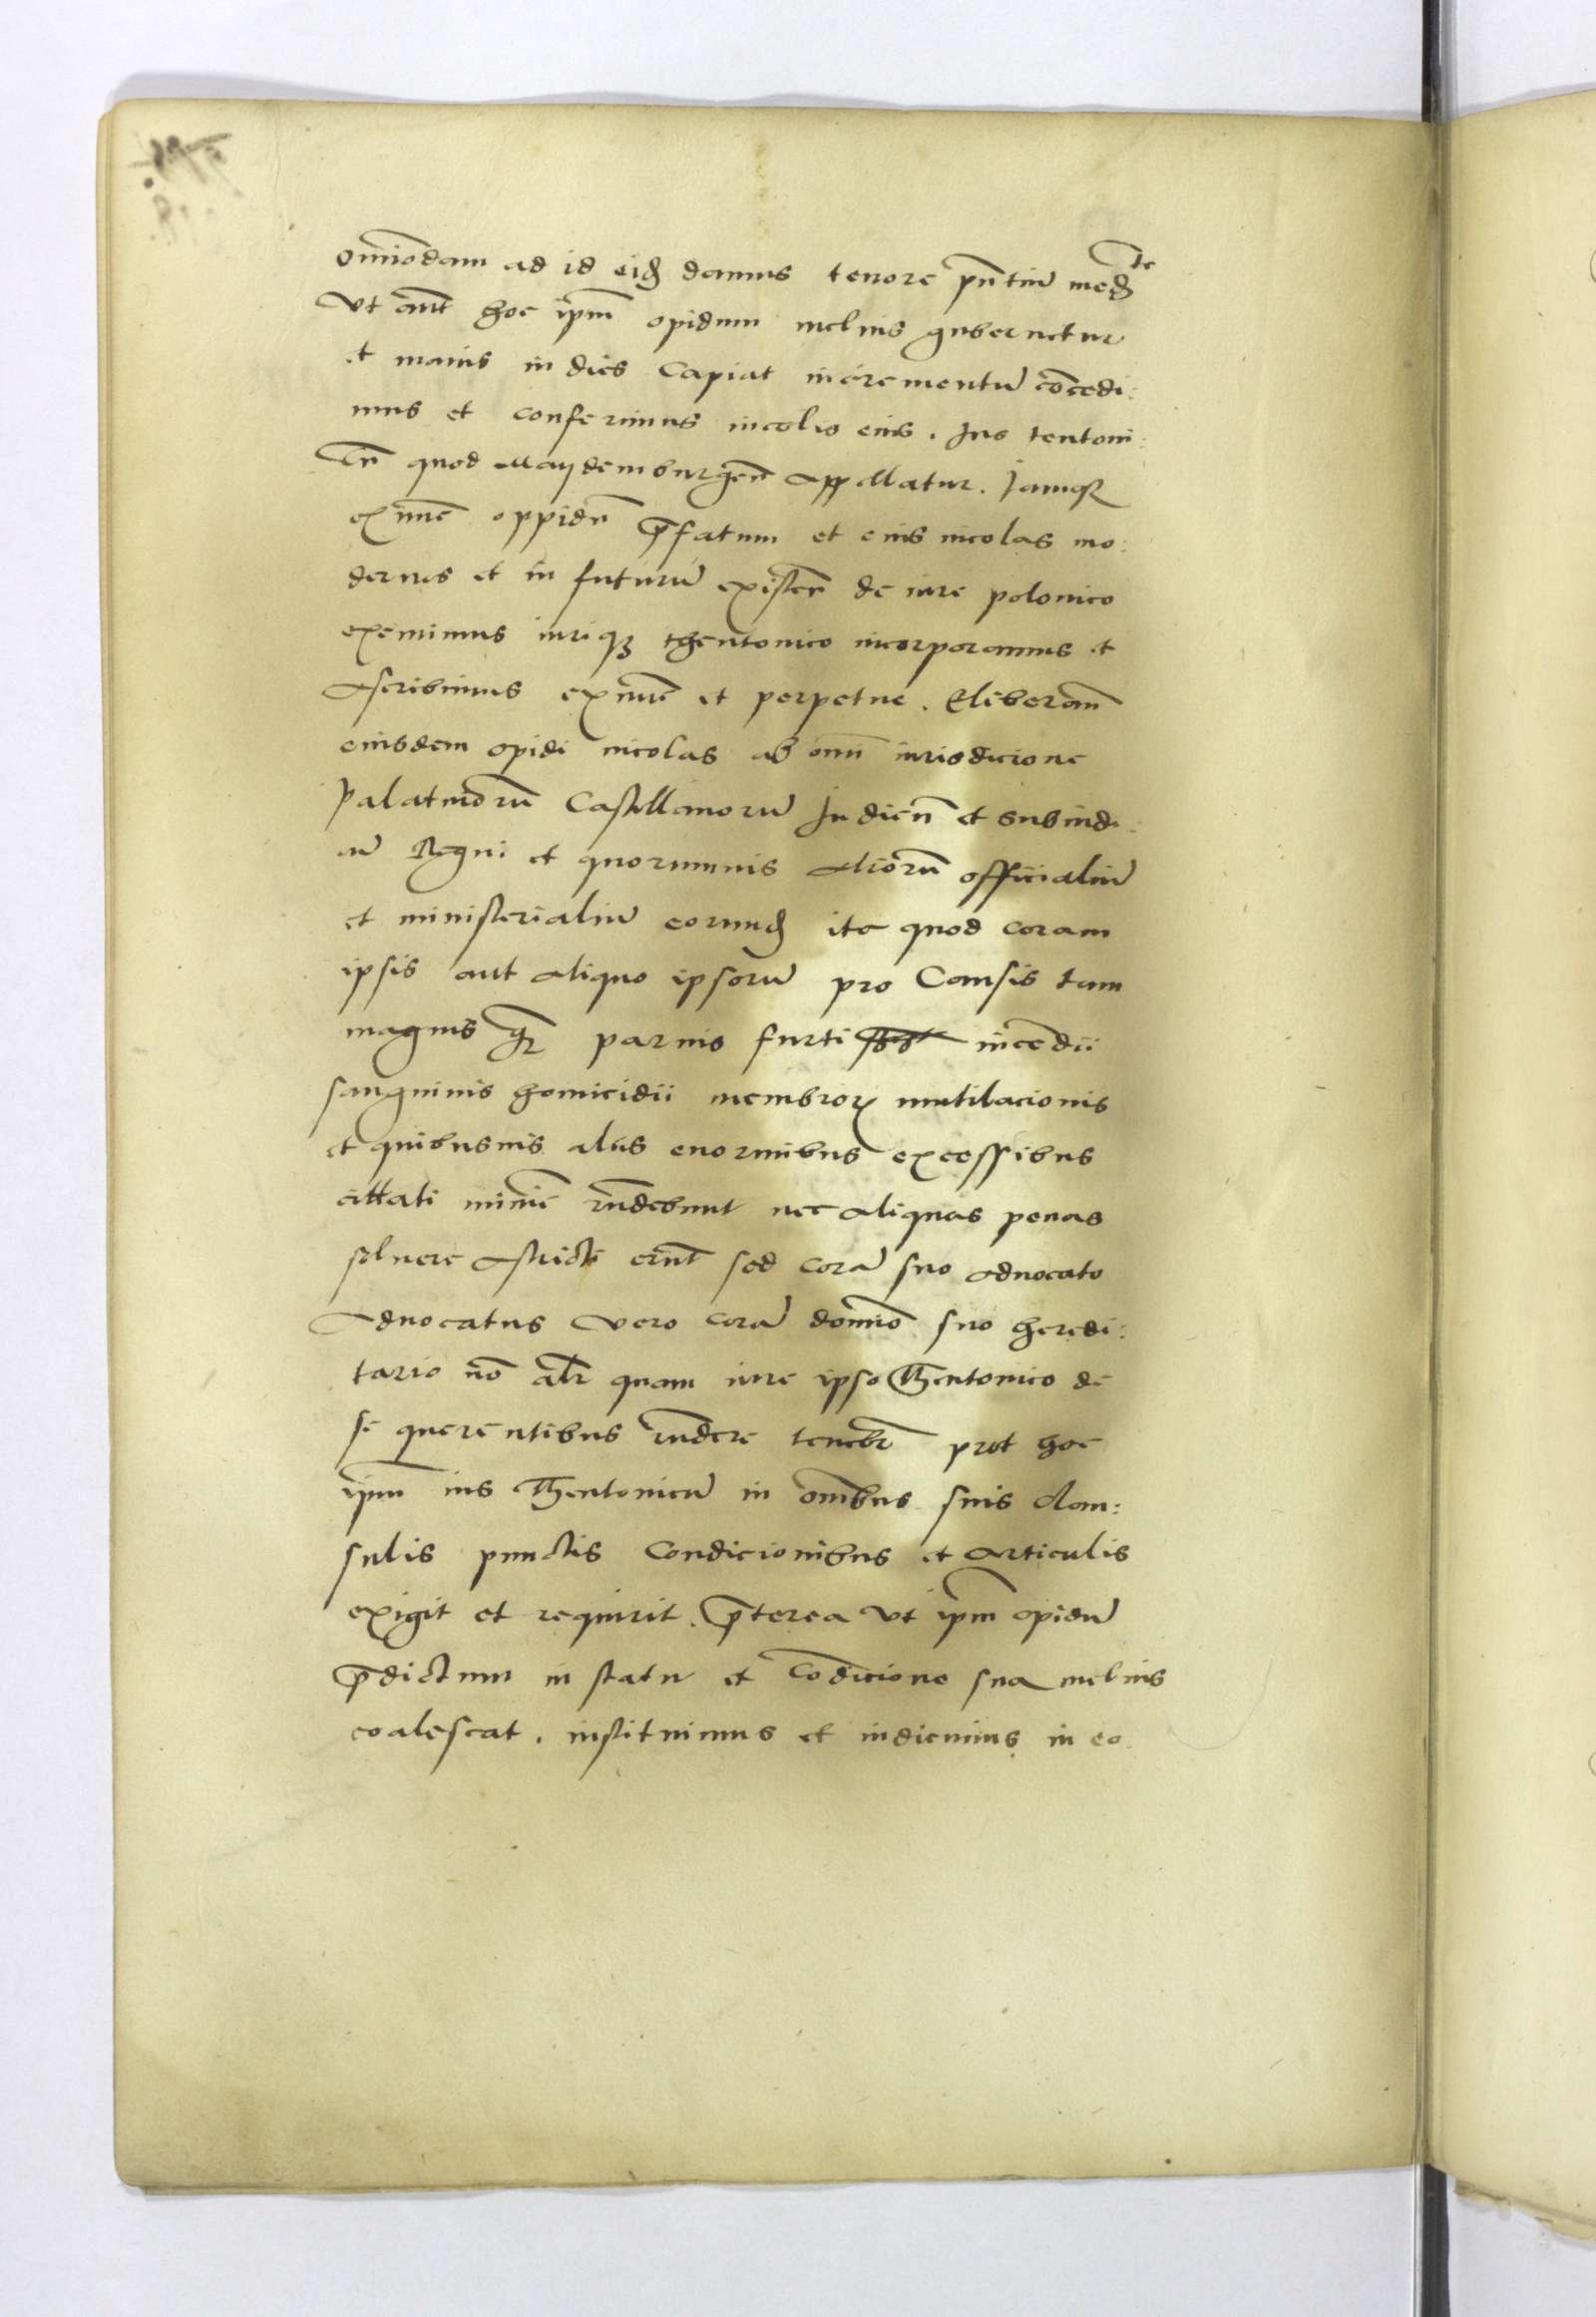 om̄iodam ad id eid damus tenore pn̄tiū medte
Vt aūt hoc ip̄m opidum melius gubernetur
et maius in dies Capiat incrementū cōcedi:
mus et conferimus incolis eius. Ius teutoni:
cū quod Maydemburgeñ Appellatur. Iamq3
ex nūc oppidū p̄fatum et eius incolas mo:
dernos et in futurū existeñ de iure polonico
eximimus iuriq3 theutonico incorporamus et
Ascribimus ex nūc et perpetue. Eliberam̄
eiusdem opidi incolas ab om̄i iurisdicione
Palatinorū Castellanorū Iudicū et subiudi:
cū Regni et quorumuis Aliorū officialiū
et ministerialiū eorumd ita quod coram
ipsis aut Aliquo ipsorū pro Causis tam
magnis q̄3 paruis furti incendii
sanguinis homicidii membrorꝫ mutilacionis
et quibusuis aliis enormibus excessibus
citati minīe rn̄debunt nec Aliquas penas
soluere Astricti erūt sed corā suo Aduocato
Aduocatus Vero corā domīo suo heredi:
tario nō alr̄ quam iure ipso Theutonico de
se querentibus rn̄dere tenebr̄ prot hoc
ip̄m ius Theutonicū in om̄ibus suis clau:
sulis punctis Condicionibus et Articulis
exigit et requirit. p̄terea Vt ip̄m opidū
p̄dictum in statu et cōdicione sua melius
coalescat. instituimus et indicimus in eo